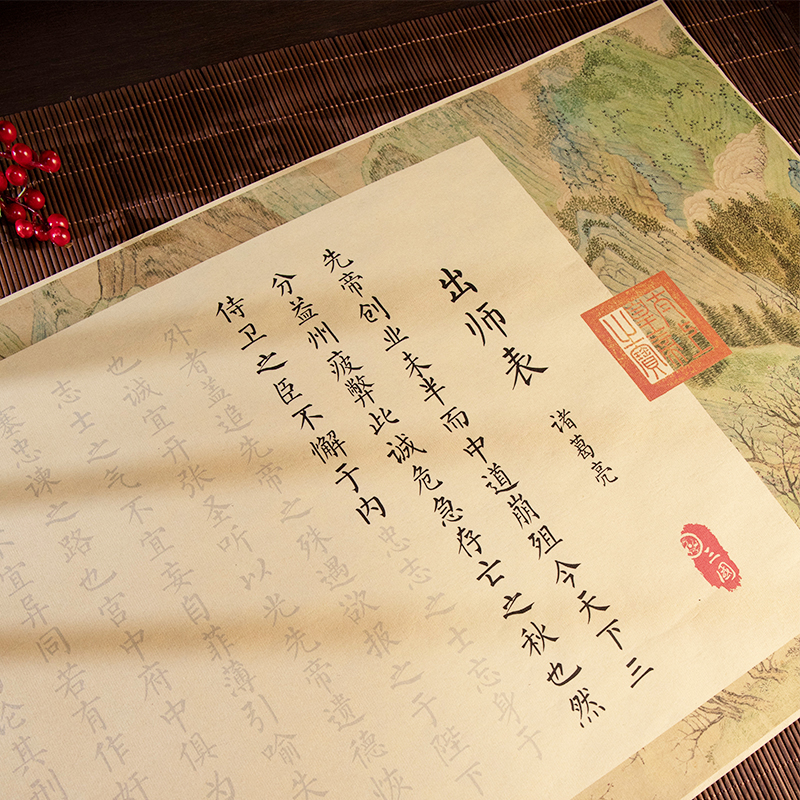 三國
出师表
诸葛亮
先帝创业未半而中道崩殂今天下三
分益州疲弊此诚危急存亡之秋也然
侍卫之臣不懈于内忠志之士忘身于
外者盖追先帝之殊遇欲报之于陛下
也诚宜开张圣听以光先帝遗德恢
志士之气不宜妄自菲薄引喻失
塞忠谏之路也宫中府中俱为
宜异同若有作奸
论其刑